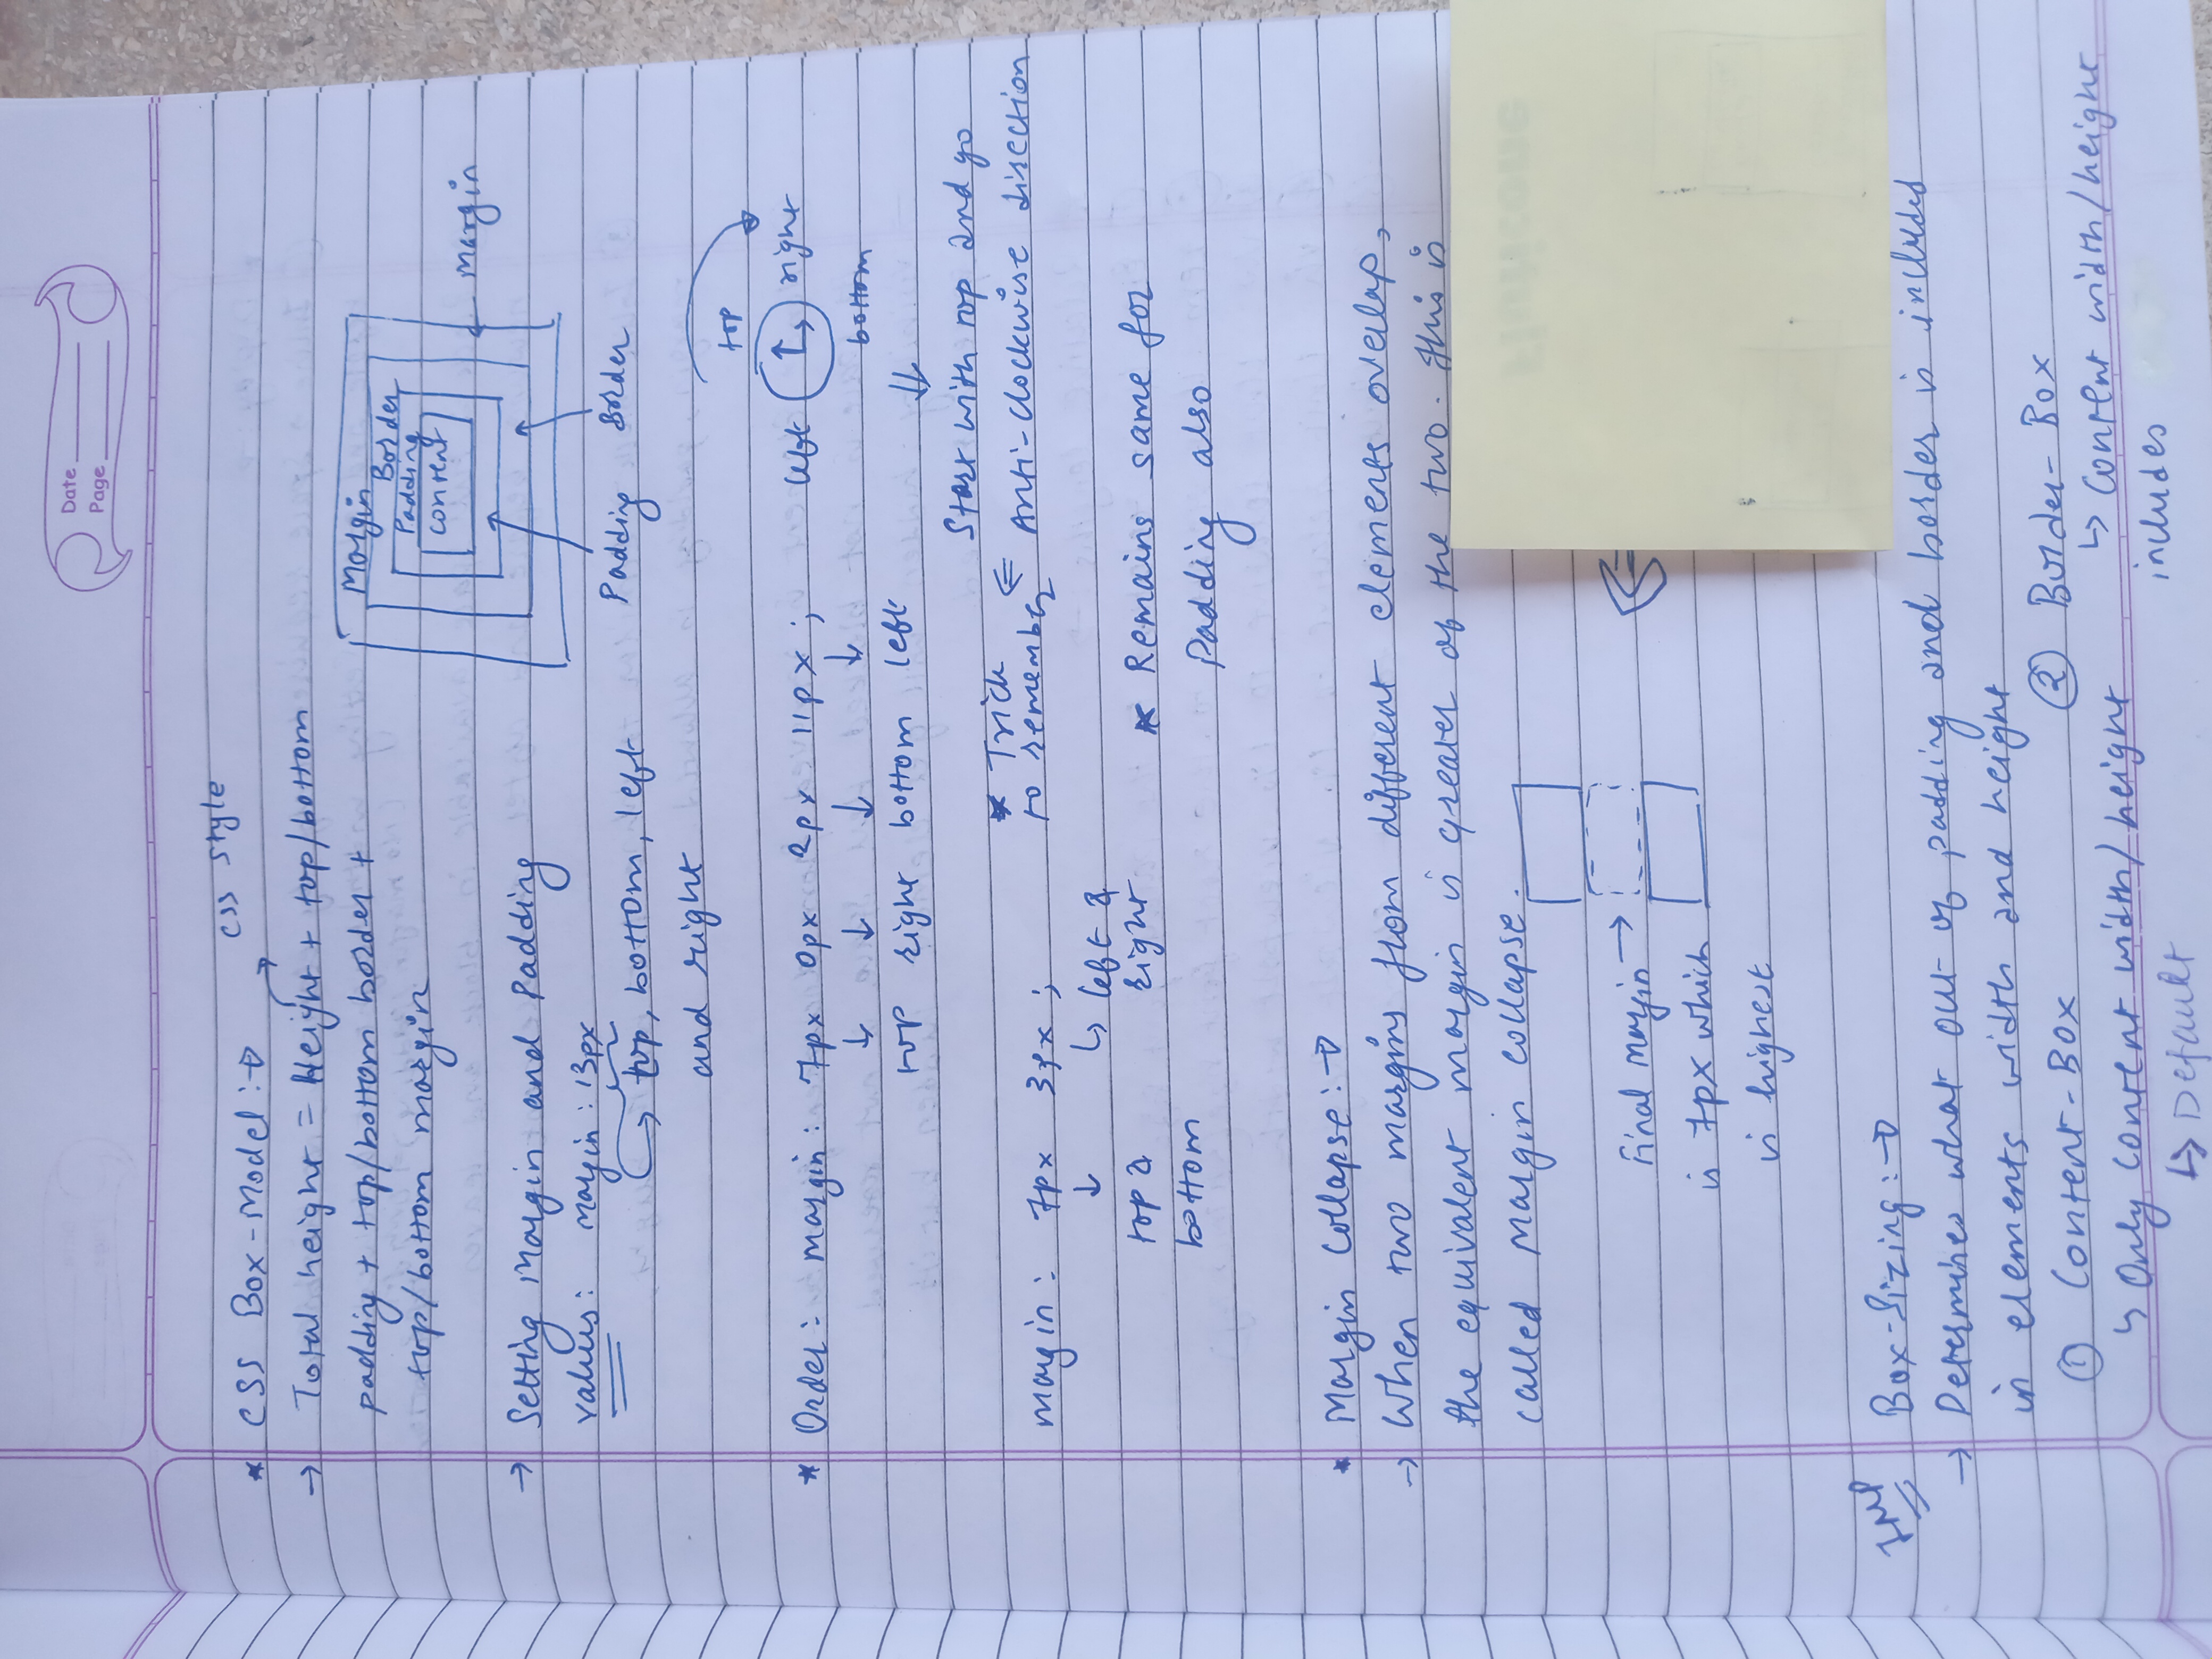 Date
Page
* CSS Box-Model :→
css style
→ Total height = Height + top/bottom
padding + top/bottom border +
top/bottom margin
Margin
Border
Padding
content
← Margin
Padding Border
→ Setting Margin and Padding
values: margin : 13px
→ top, bottom, left
and right
top
left right
bottom
* Order: margin: 7px 0px 2px 11px ;
↓ ↓ ↓ ↓
top right bottom left
⇓
Start with top and go
Anti-clockwise direction
⇐
* Trick
to remember
margin: 7px 3px ;
↓ ↳ left &
right
top &
bottom
* Remains same for
Padding also
* Margin Collapse :→
→ When two margins from different elements overlap,
the equivalent margin is greater of the two. This is
called Margin collapse.
Final margin →
is 7px which
is highest
⇐
IMP
Box-Sizing :→
→ Determines what out of padding and border is included
in elements width and height
① Content-Box
↳ Only content width/height
↳ Default
② Border-Box
↳ Content width/height
includes